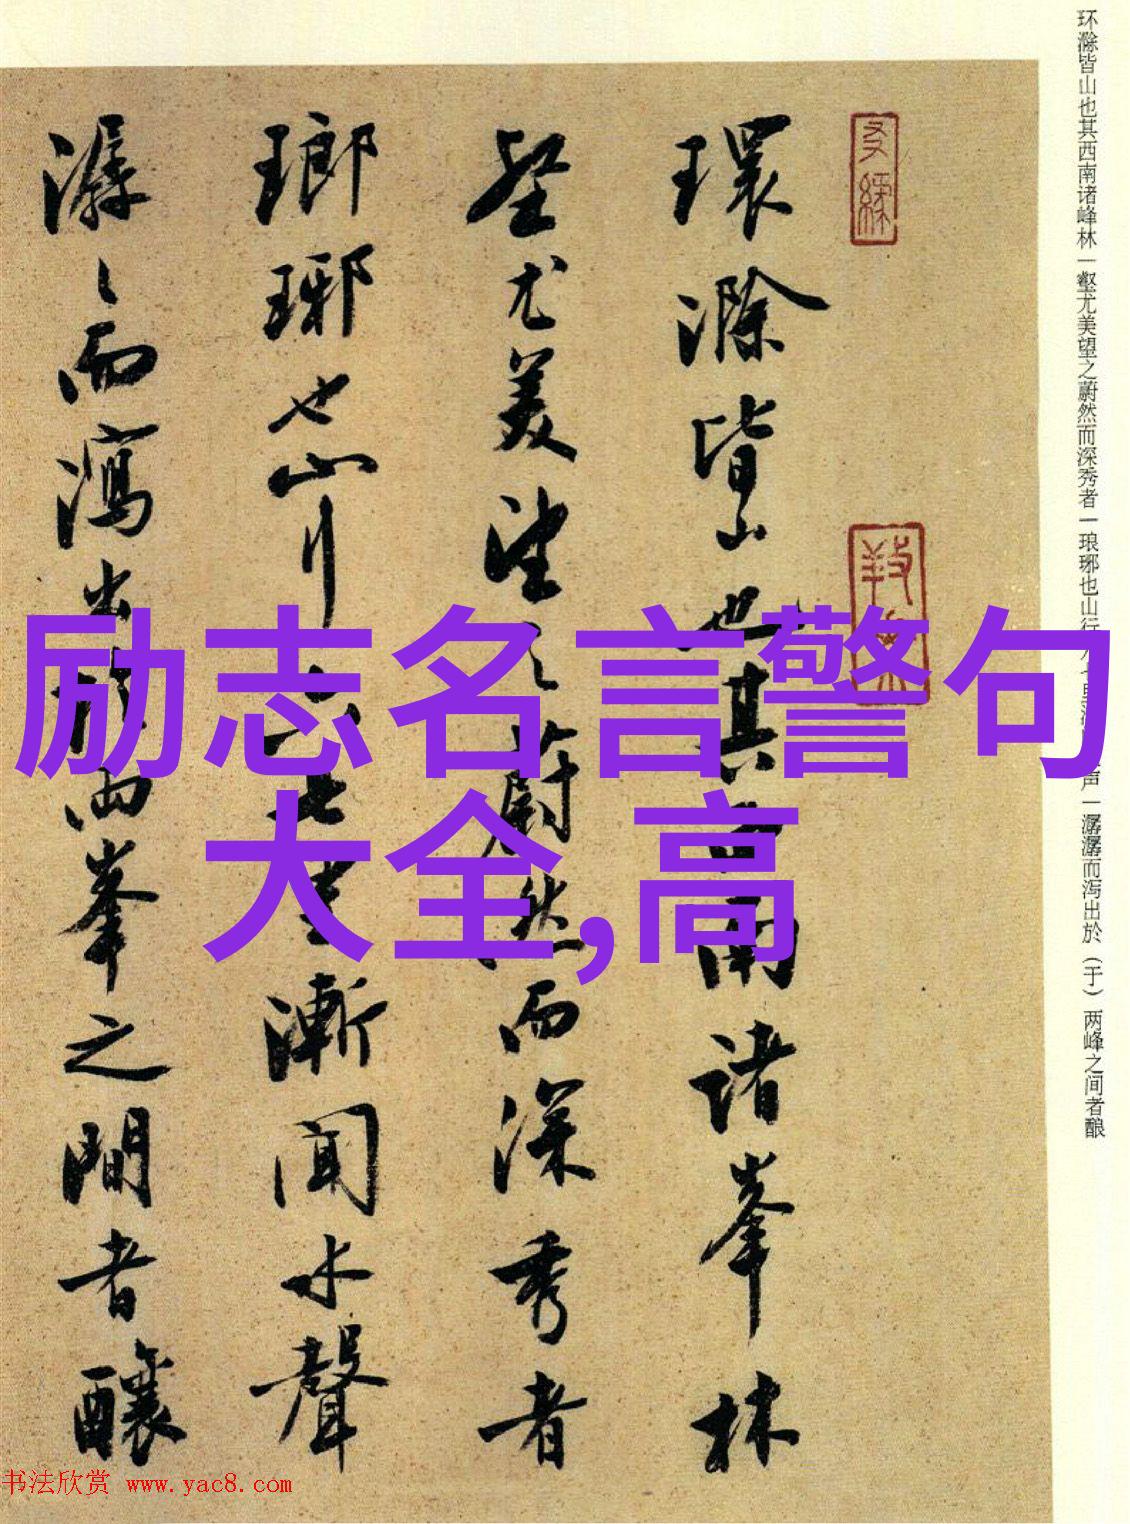 环滁皆山也其西南诸峰林一壑尤美望之蔚然而深秀者一琅琊也山行六七里渐闻水声一潺潺而泻出於（于）两峰之间者酿
環滁皆山也其西南諸峯林
壑尤美望之蔚然而深秀者
瑯琊也山行六七里漸聞水聲
潺〻而瀉出於兩峯之間者釀
励志名言警句
大全,高
书法欣赏 www.yac8.com